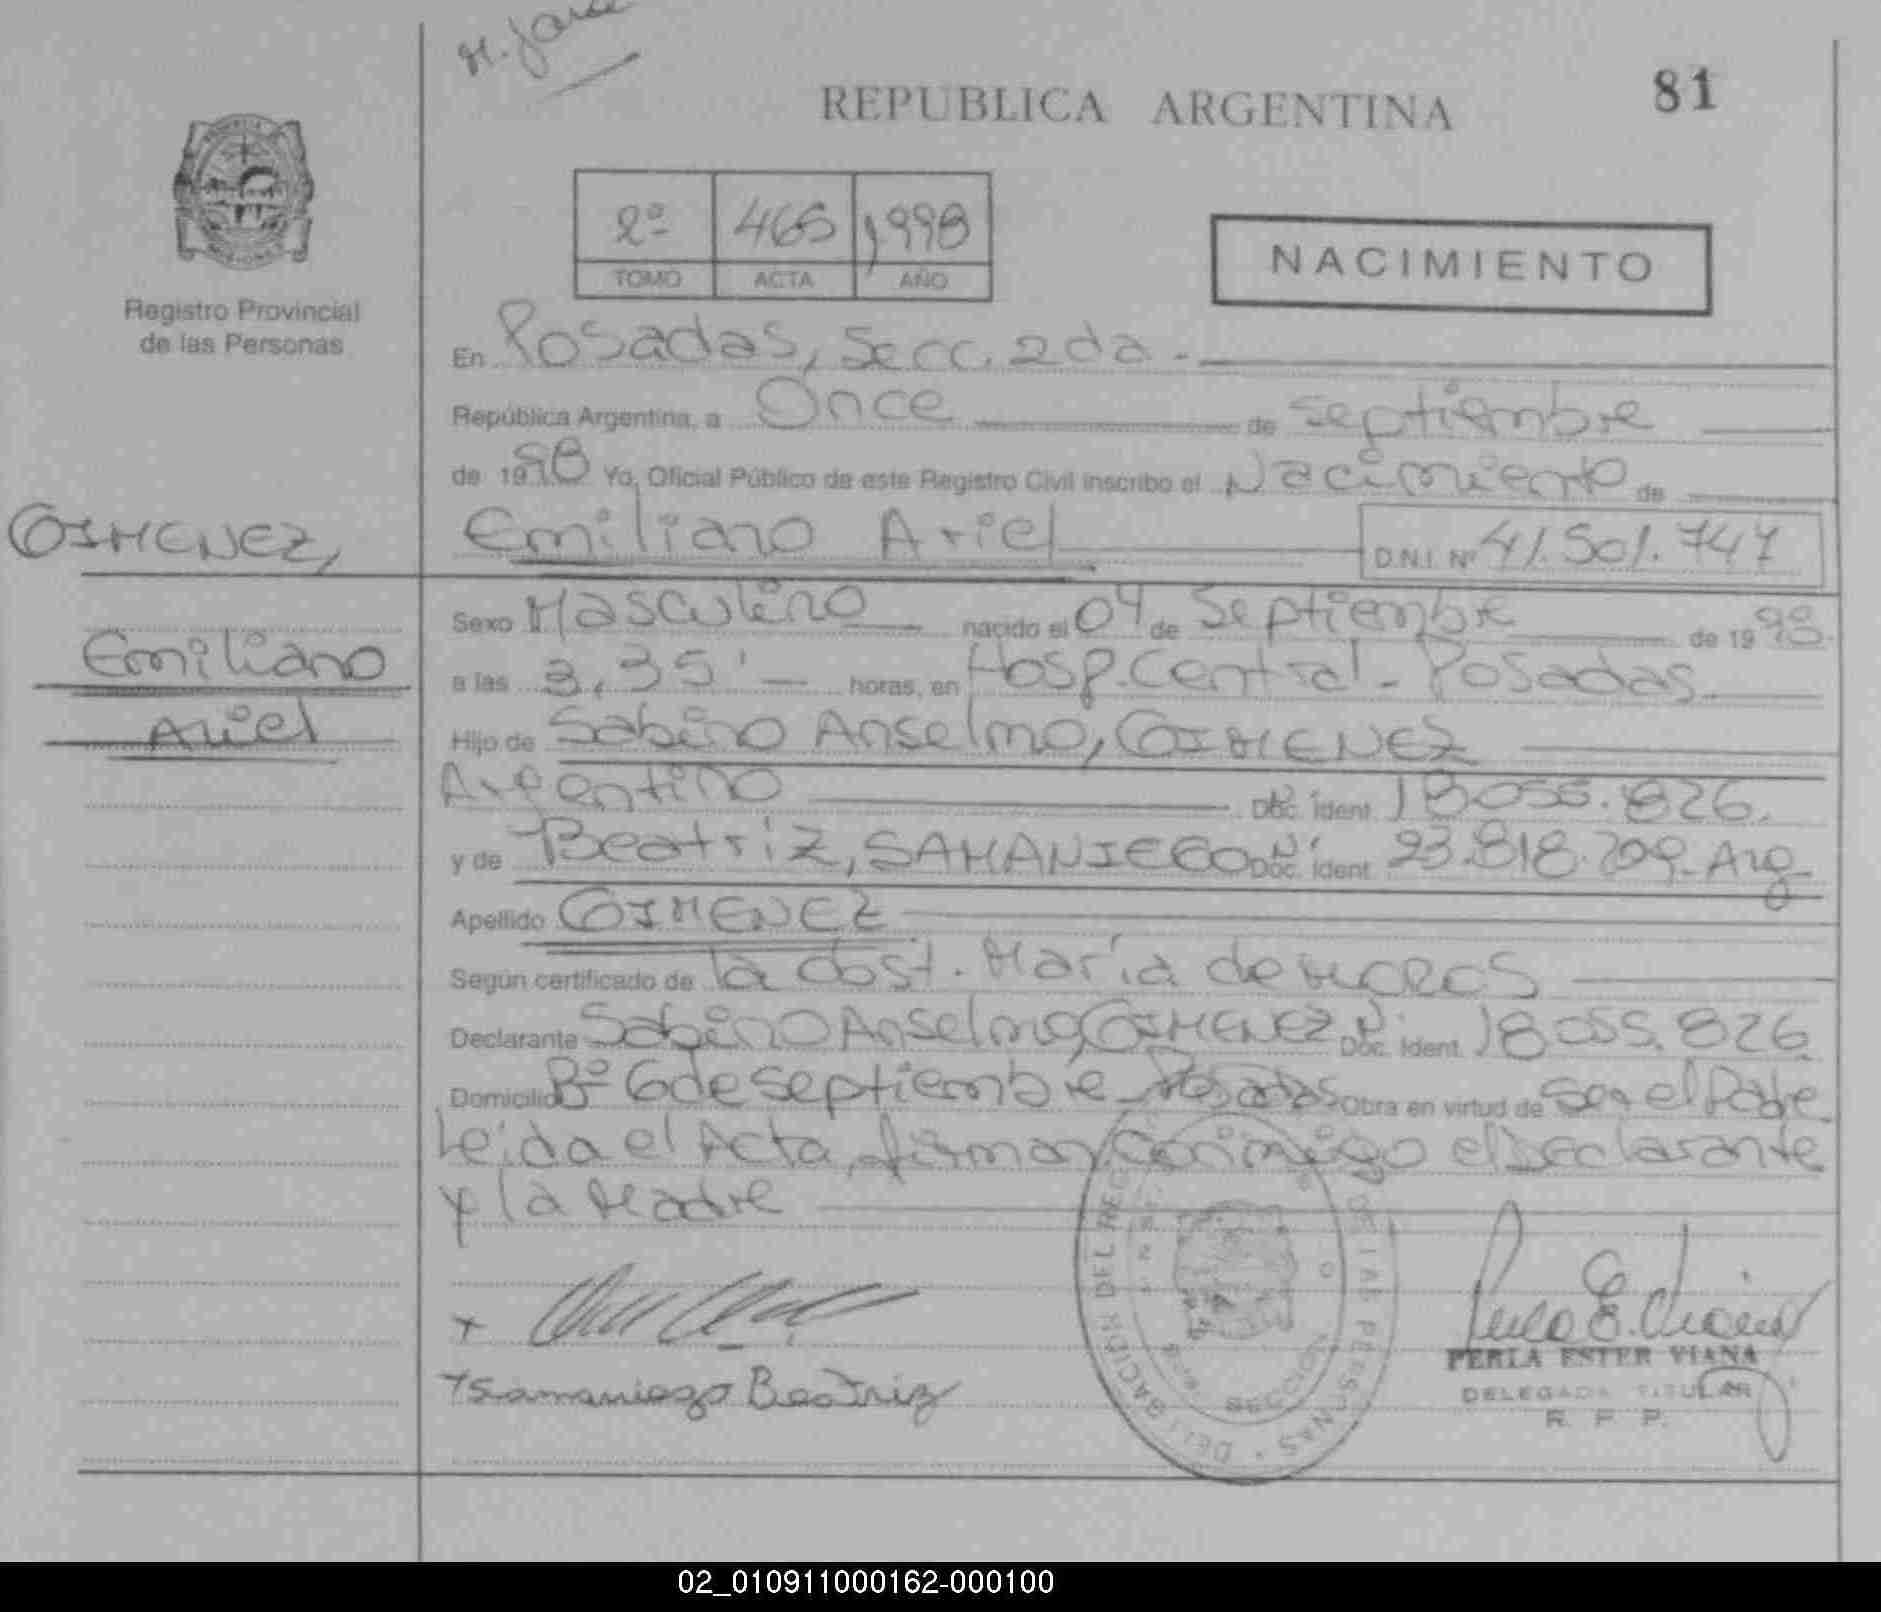 REPUBLICA ARGENTINA
81
Registro Provincial
de las Personas
2º 465 1998
TOMO ACTA AÑO
NACIMIENTO
En Posadas, Secc. 2da.
República Argentina, a Once de Septiembre
de 1998 Yo, Oficial Público de este Registro Civil inscribo el Nacimiento de
GIMENEZ,
Emiliano
Ariel
Emiliano Ariel D.N.I. Nº 41.501.747
Sexo Masculino nacido el 04 de Septiembre de 1998.
a las 3,35' horas, en Hosp. Central - Posadas
Hijo de Sabino Anselmo, GIMENEZ
Argentino Doc. Ident. 18.055.826.
y de Beatriz, SAMANIEGO Doc. Ident. 23.818.709 - Arg
Apellido GIMENEZ
Según certificado de la Obst. María de
Declarante Sabino Anselmo, GIMENEZ Doc. Ident. 18.055.826.
Domicilio Bº 6 de Septiembre - Posadas Obra en virtud de ser el Padre
Leida el Acta, firman conmigo el Declarante
y la Madre
Samaniego Beatriz
DELEGACIÓN DEL REG DE LAS PERSONAS
SECCION
PERLA ESTER VIANA
DELEGADA TITULAR
R. P. P.
02_010911000162-000100